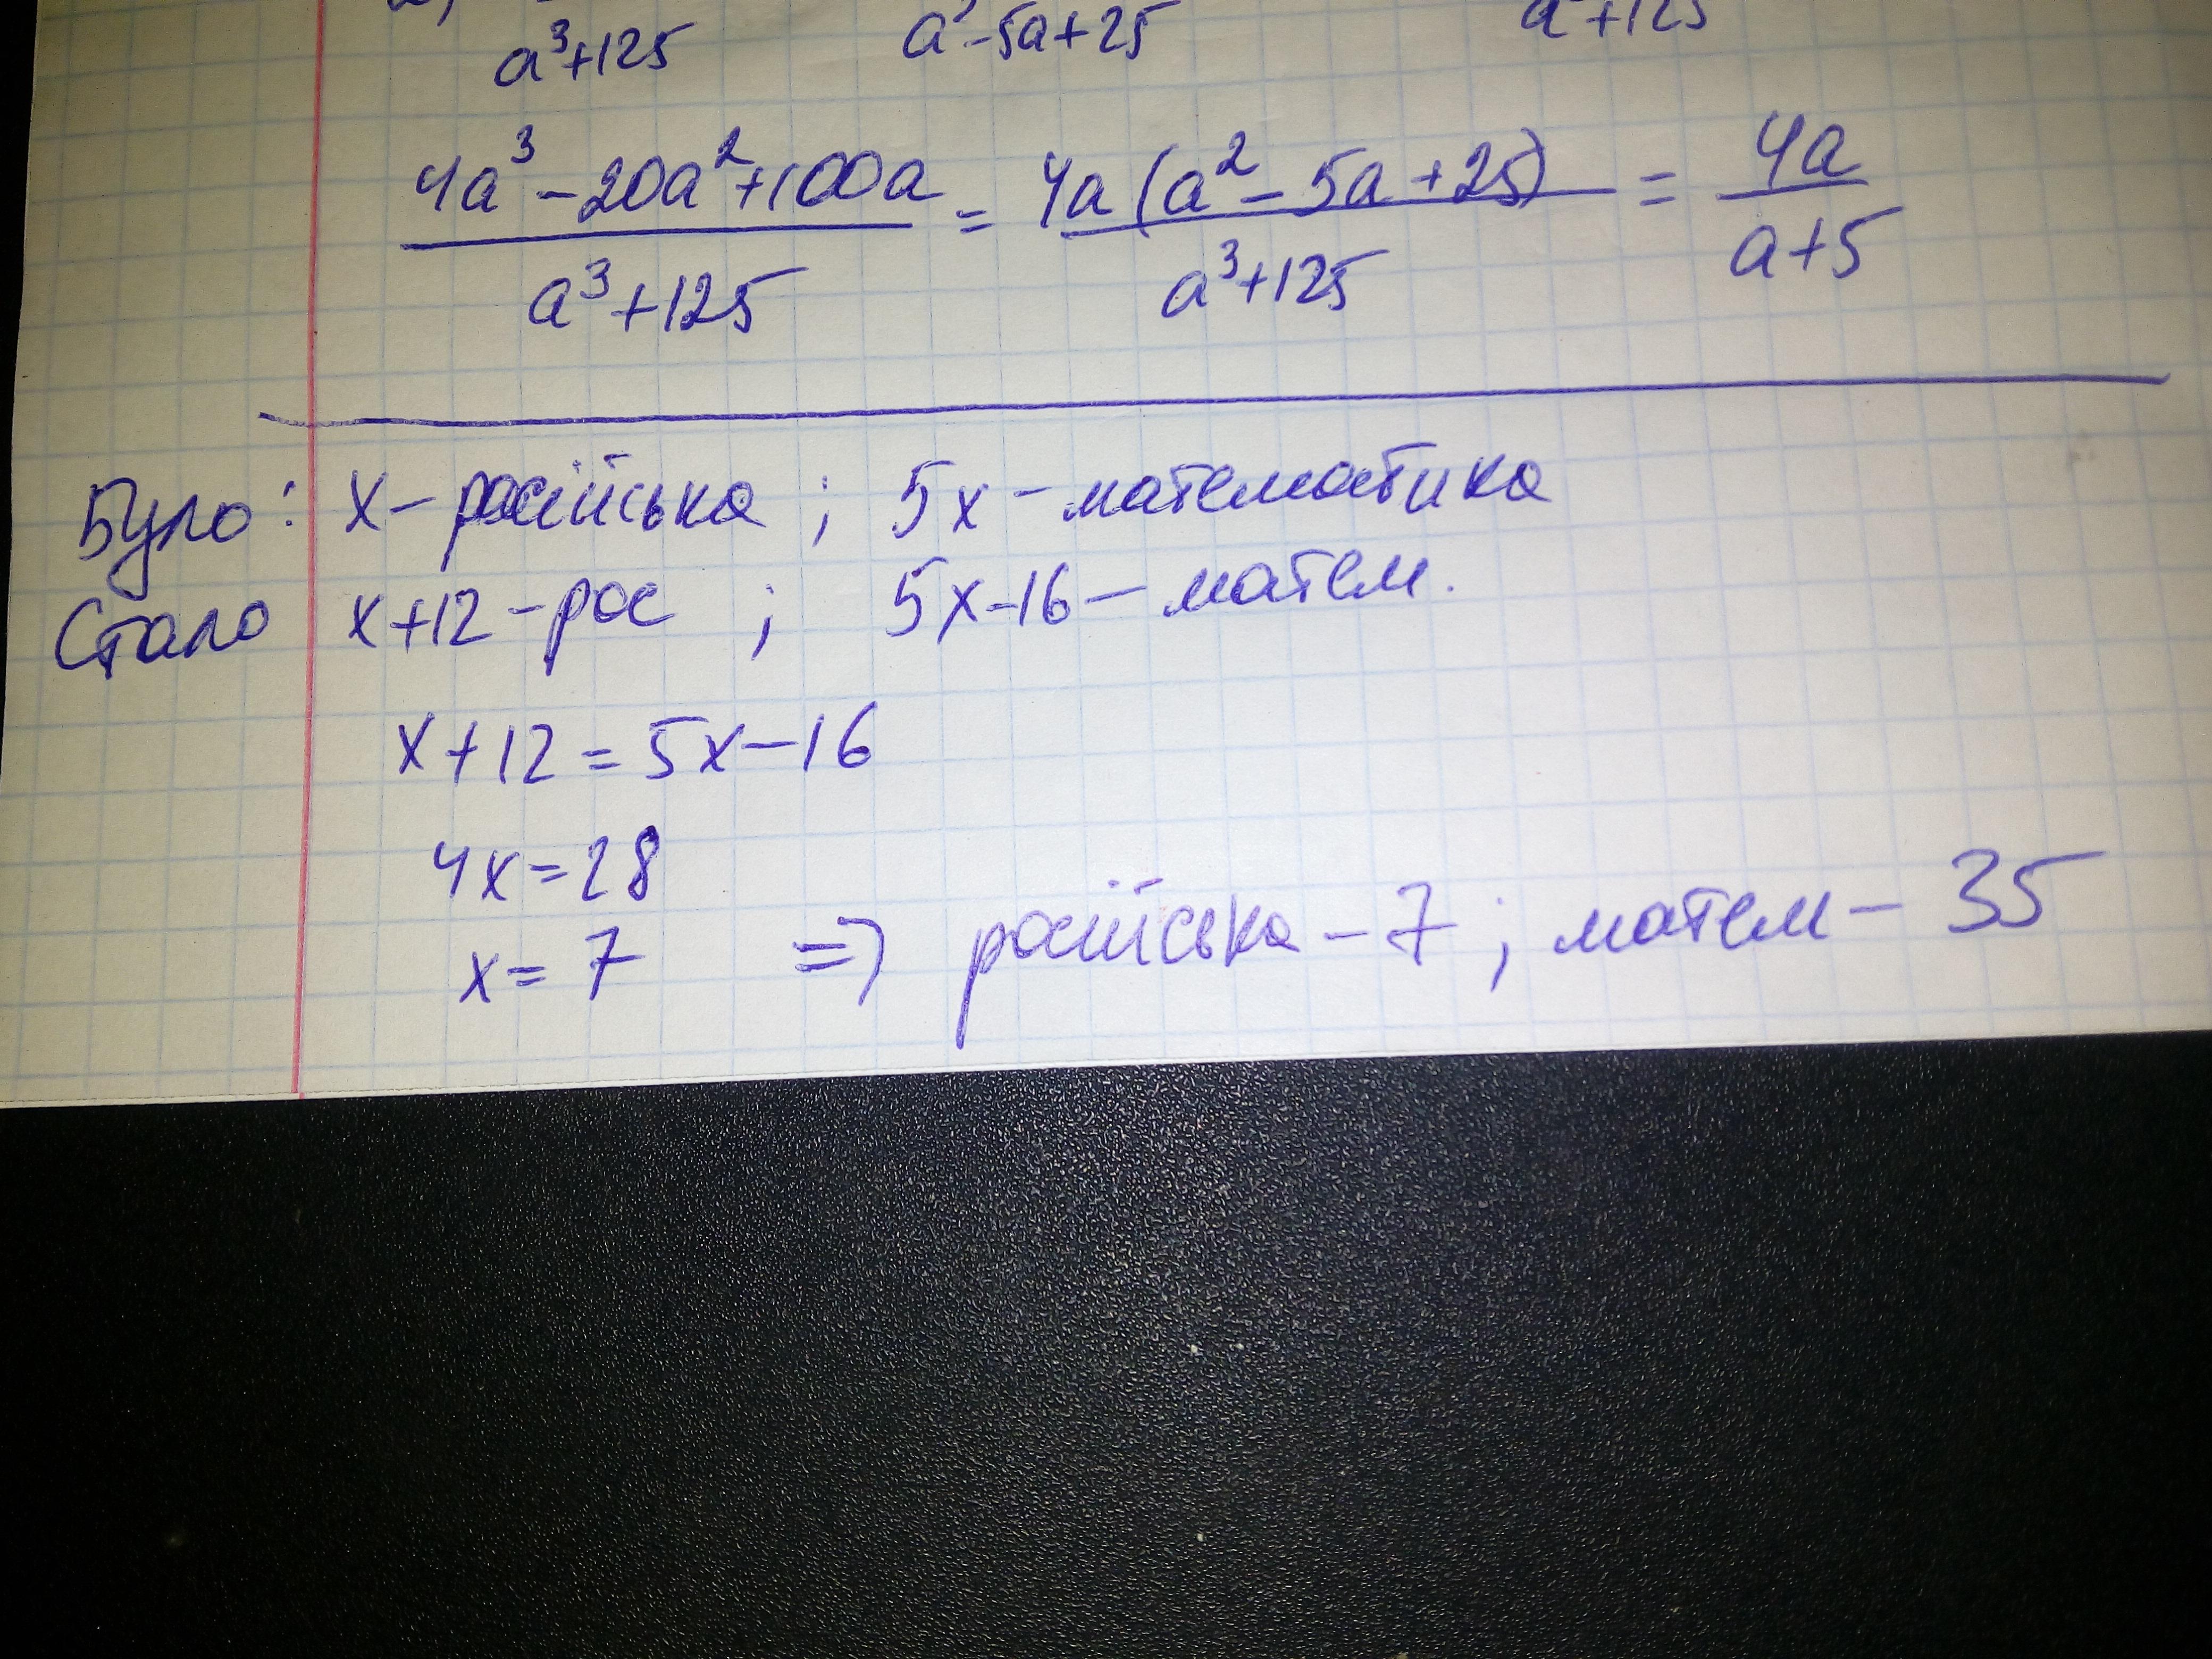 a³+125 a²-5a+25 a³+125
4a³-20a²+100a / a³+125 = 4a(a²-5a+25) / a³+125 = 4a / a+5
Було: x-російська ; 5x-математика
Стало x+12-рос ; 5x-16-матем.
x+12=5x-16
4x=28
x=7 => російська-7; матем-35